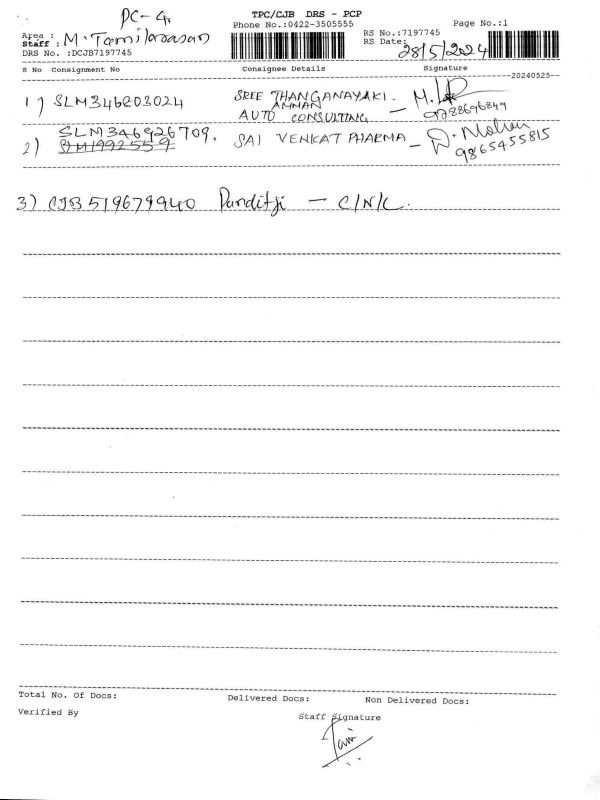 PC-4
TPC/CJB DRS - PCP
Page No.:1
Phone No.:0422-3505555
Area :
Staff : M. Tamilarasan
RS No.:7197745
RS Date: 28/5/2024
DRS No. :DCJB7197745
S No Consignment No Consignee Details Signature
20240525
1) SLM346803024 SREE THANGANAYAKI
AMMAN
AUTO CONSULTING -
SLM346926709.
2) SAI VENKAT PHARMA - D. Mohan
9865455815
3) CJB519679940 Panditji - C/N/C.
Total No. Of Docs: Delivered Docs: Non Delivered Docs:
Verified By Staff Signature
Tami